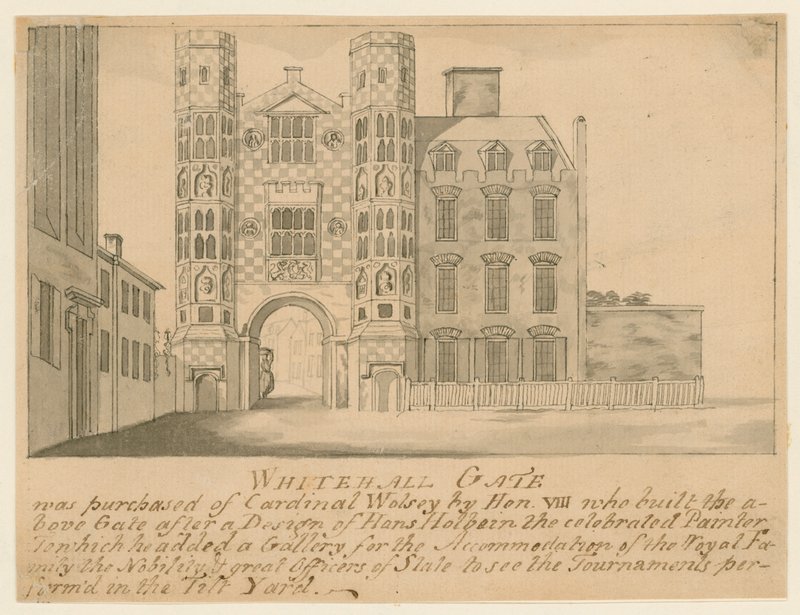 WHITEHALL GATE
was purchased of Cardinal Wolsey by Hen. VIII who built the a-
bove Gate after a Design of Hans Holbein the celebrated Painter
To which he added a Gallery for the Accommodation of the Royal Fa-
mily the Nobility & great Officers of State to see the Tournaments per-
form'd in the Tilt Yard.